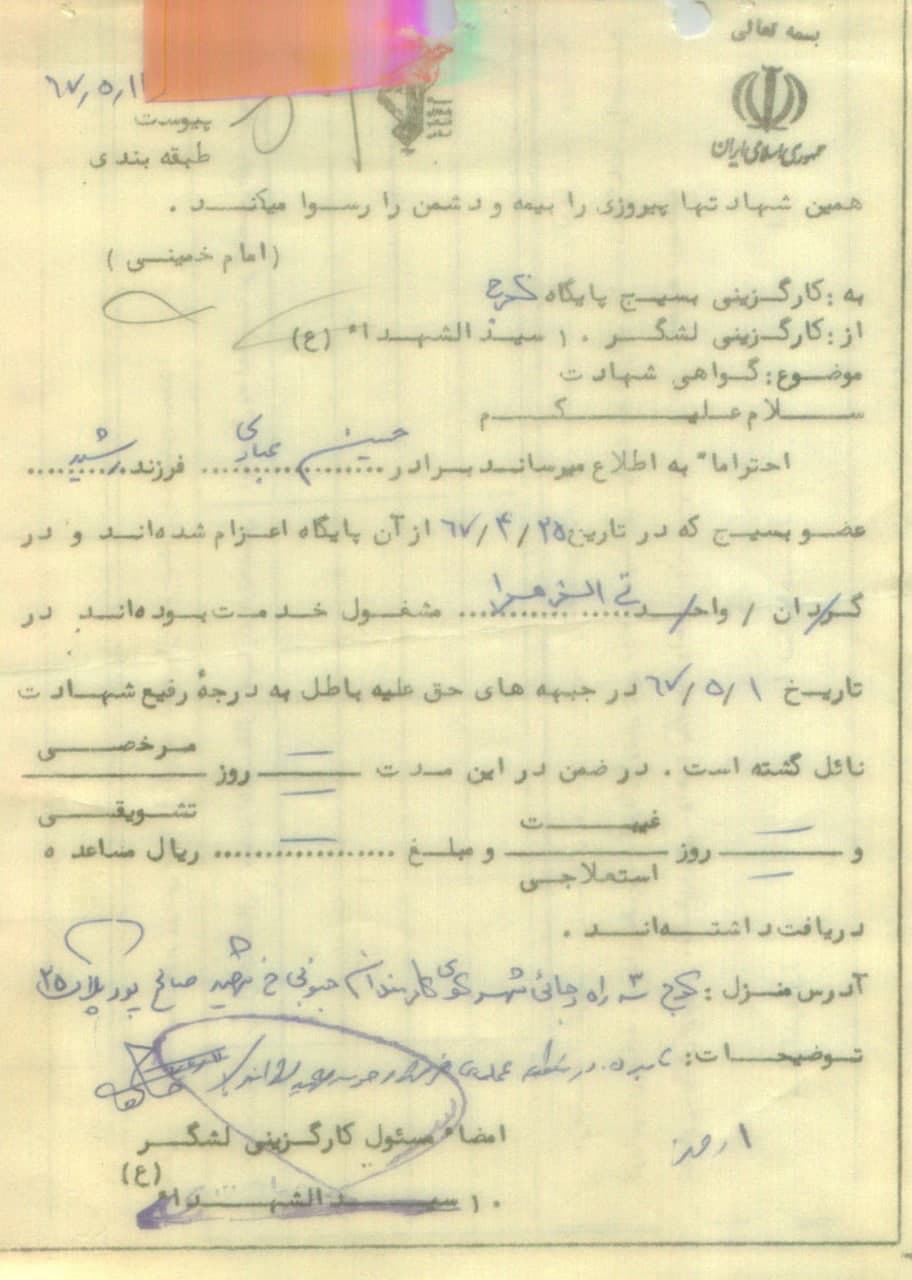 بسمه تعالی
جمهوری اسلامی ایران
۶۷٫۵٫۱۱
پیوست
طبقه بندی
همین شهادتها پیروزی را بیمه و دشمن را رسوا میکنند .
(امام خمینی)
به : کارگزینی بسیج پایگاه کرج
از : کارگزینی لشگر ۱۰ سیدالشهداء (ع)
موضوع : گواهی شهادت
سلام علیکم
احتراماً به اطلاع میرساند برادر حسین عبادی فرزند رشید
عضو بسیج که در تاریخ ۶۷/۴/۲۵ از آن پایگاه اعزام شده‌اند و در
گردان / واحد الزهرا مشغول خدمت بوده‌اند در
تاریخ ۶۷/۵/۱ در جبهه های حق علیه باطل به درجهٔ رفیع شهادت
نائل گشته است . در ضمن در این مدت — روز مرخصی تشویقی
و — روز غیبت استعلاجی و مبلغ — ریال مساعده
دریافت داشته‌اند .
آدرس منزل : کرج ۳ راه رجائی شهر کوی کارمندان جنوبی خ شهید صالح پور پلاک ۲۵
توضیحات : نامبرده در منطقه عملیاتی
امضاء مسئول کارگزینی لشگر
۱۰ سیدالشهداء (ع)